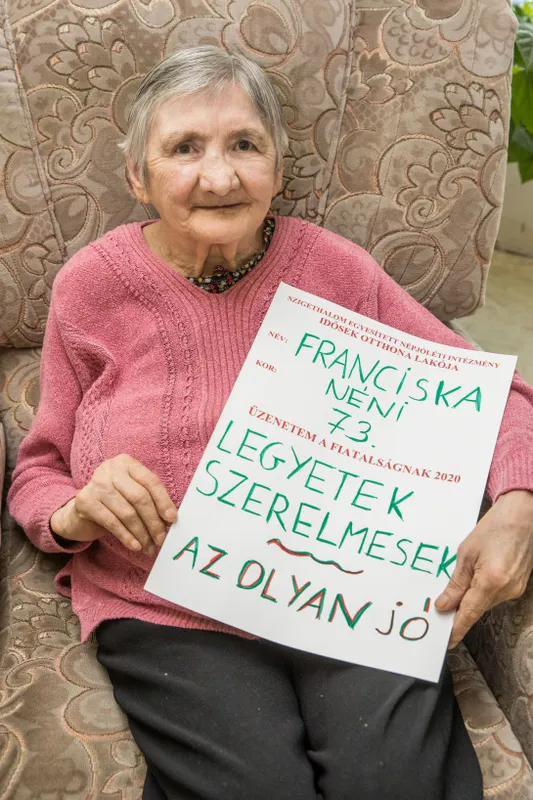 SZIGETHALOM EGYESÍTETT NÉPJÓLÉTI INTÉZMÉNY
IDŐSEK OTTHONA LAKÓJA
NÉV: FRANCISKA
NÉNI
KOR: 73.
ÜZENETEM A FIATALSÁGNAK 2020
LEGYETEK
SZERELMESEK
AZ OLYAN JÓ